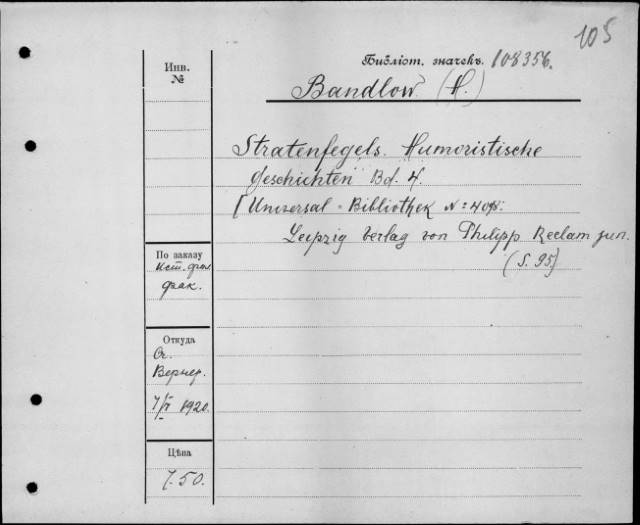 105
Библіот. значекъ. 108356.
Инв.
№
Bandlow (H.)
Stratenfegels. Humoristische
Geschichten Bd. 4.
[Universal-Bibliothek №
Leipzig Verlag von Philipp Reclam jun.
(S. 95]
По заказу
Ист. фил.
фак.
Откуда
От
Вернер.
1920.
Цѣна
7.50.